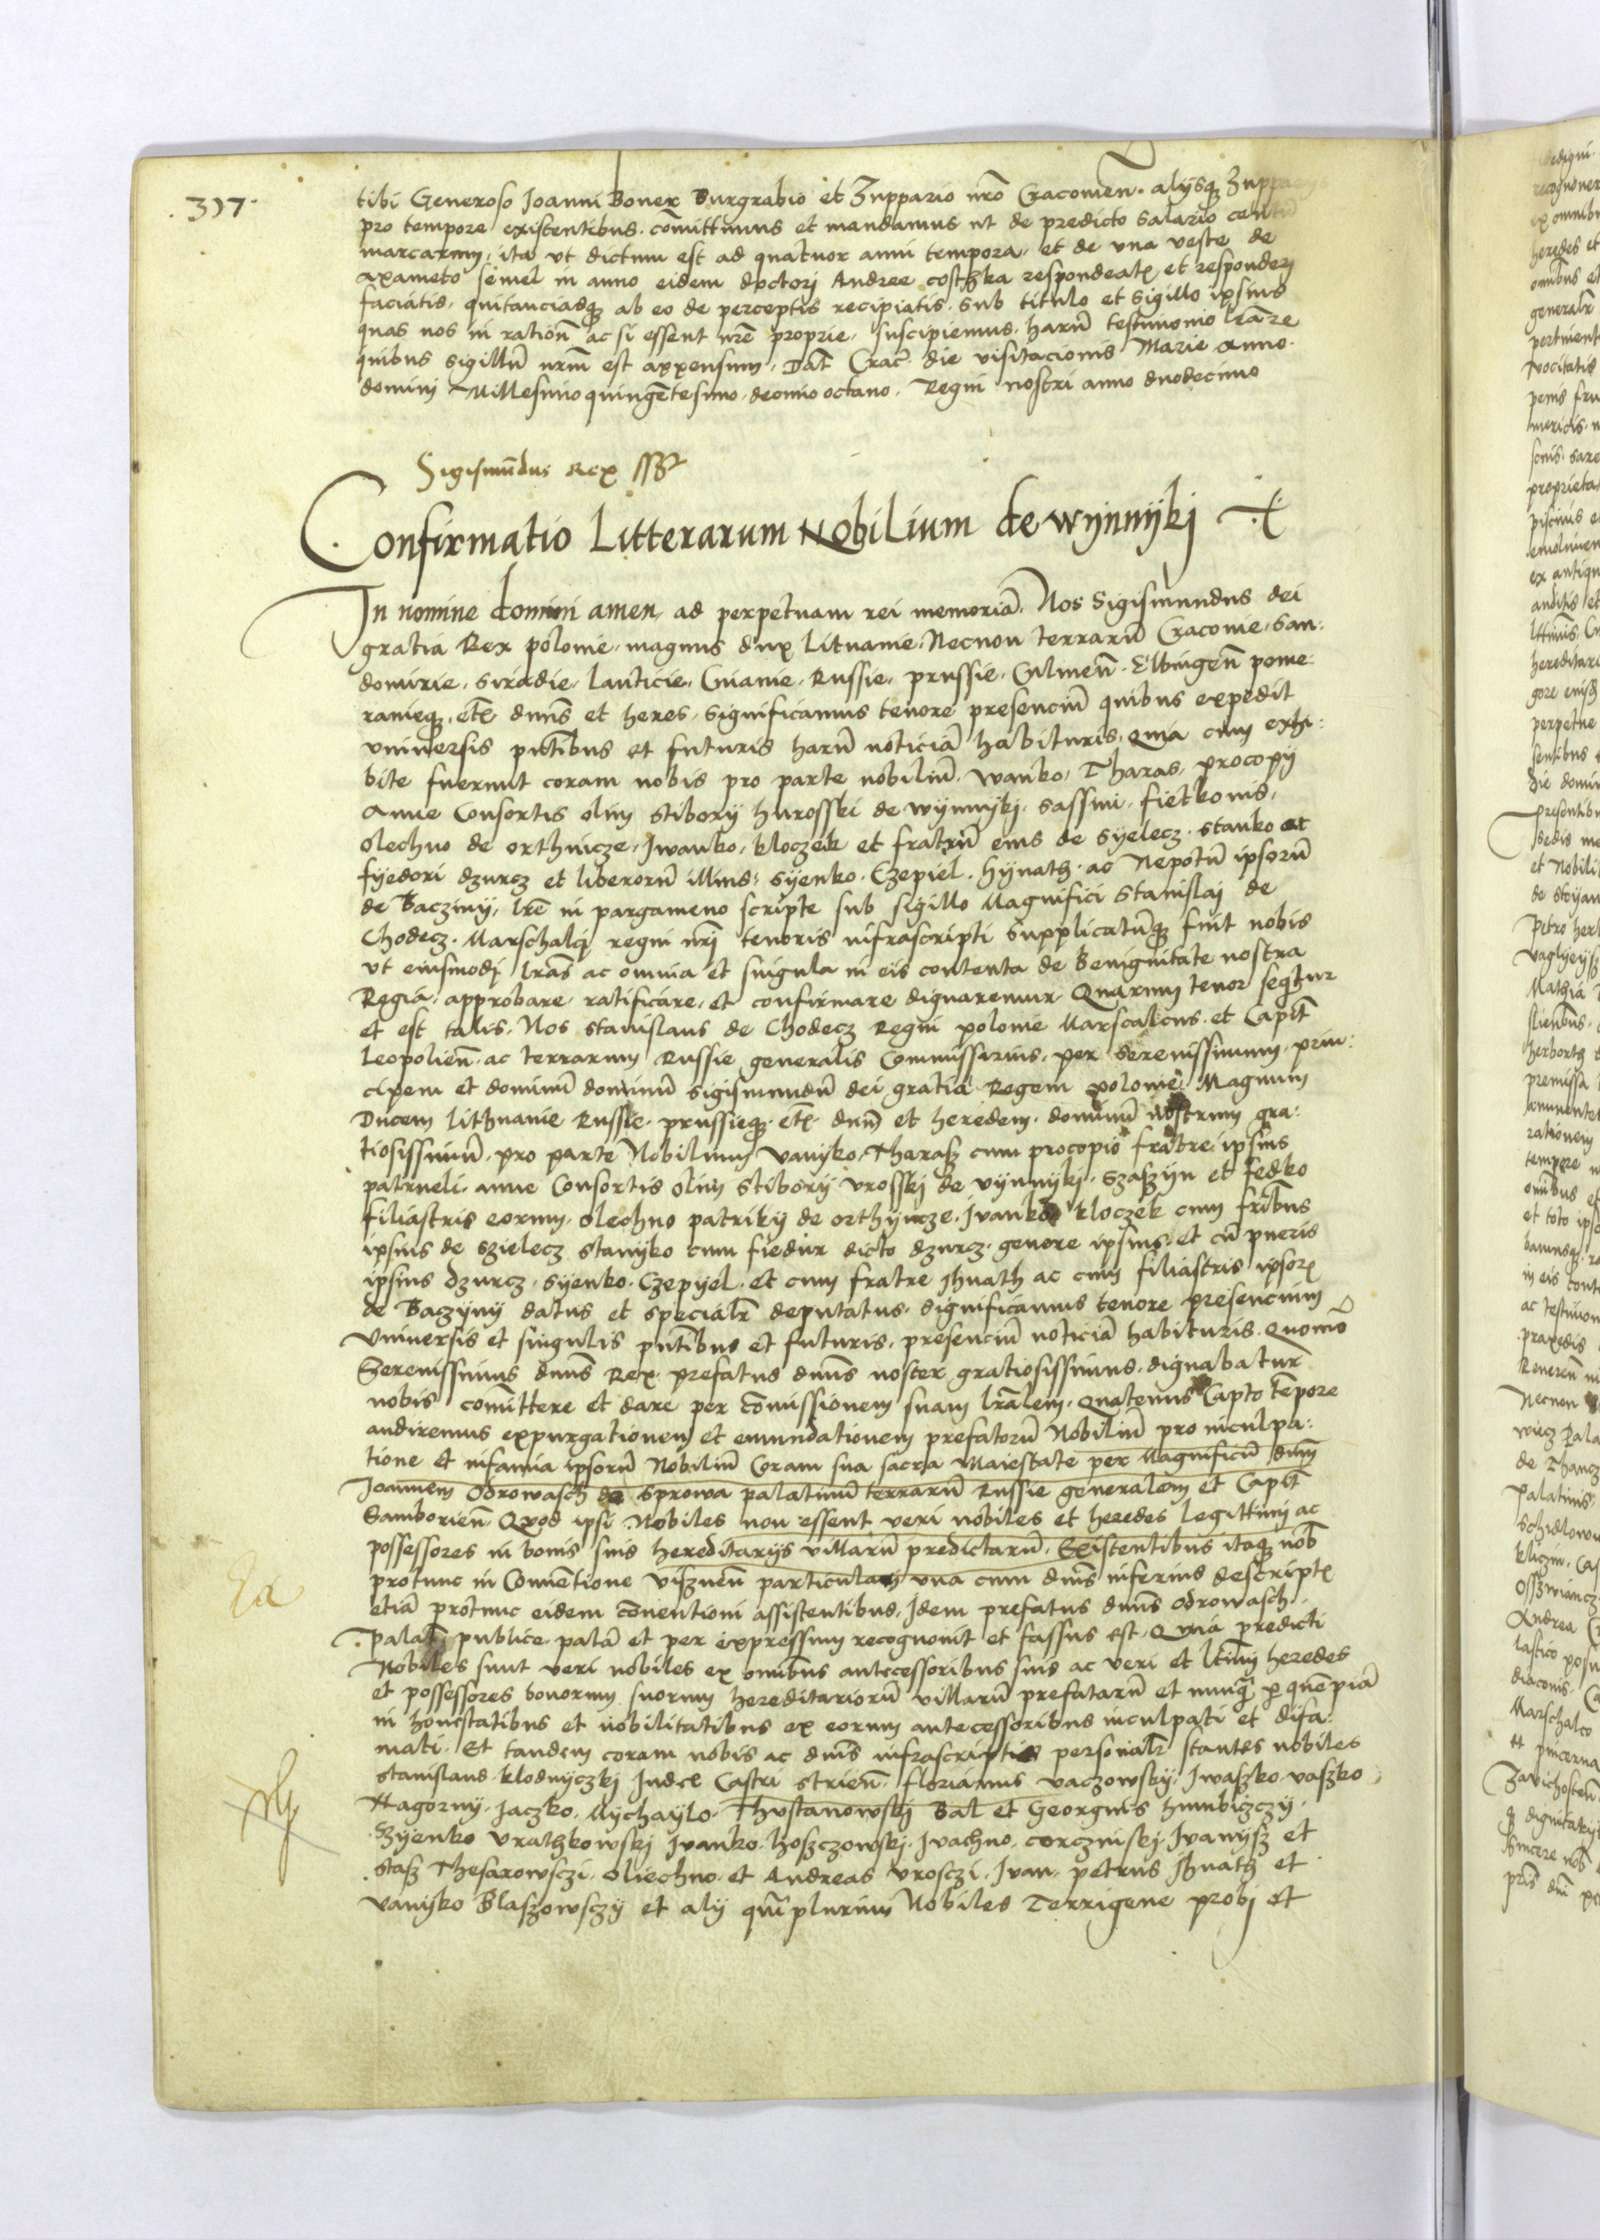 .397.
tibi Generoso Joanni Boner Burgrabio et Zuppario nro Cracouien. alijsq Zuppa
pro tempore existentibus. comittimus et mandamus ut de predicto Salario centu
marcarum, ita ut dictum est ad quatuor anni tempora, et de vna veste de
axameto semel in anno eidem doctorj Andree costhka respondeat et responderj
faciatis, quitanciasq ab eo de perceptis recipiatis. Sub titulo et Sigillo ipsius
quas nos in ration ac si essent nre proprie, suscipiemus. haru testimonio lrare
quibus Sigillu nrm est appensum, Dat Crac die visitacionis Marie anno.
dominj Millesimo quingetesimo. decimo octauo. Regni nostri anno duodecimo
Sigismudus Rex sszt
Confirmatio Litterarum Nobilium de wynnykj
In nomine domini amen, ad perpetuam rei memoria. Nos Sigismundus dei
gratia Rex polonie, magnus dux Lituanie, Necnon terraru Cracouie, San:
domirie, Siradie, lancicie, Cuiauie, Russie, prussie, Culmen. Elbingen pome:
ranieq, etc dnus et heres, Significamus tenore presenciu quibus expedit
vniuersis pntibus et futuris haru noticia habituris, Quia cum exhi:
bite fuerunt coram nobis pro parte nobiliu. wanko, Tharas, procopij
Anne Consortis olim Stiborij hurosski de wynnykj. Sassini, fietkonis,
Olechno de orthnicze, Jwanko, kloczek et fratru eius de Syelecz. Stanko et
fyedori dzurcz et liberoru illius, Syenko. Czepiel. hynath. ac Nepotu ipsoru
de Bacziny, lre in pargameno scripte sub sigillo Magnifici Stanislaj de
Chodecz. Marschalcj regni nrj tenoris infrascripti supplicatuq fuit nobis
vt eiusmodj lras ac omnia et singula in eis contenta de Benignitate nostra
Regia, approbare, ratificare, et confirmare dignaremur Quarum tenor seqtur
et est talis. Nos Stanislaus de Chodecz Regni polonie Marscalcus. et Capit
Leopolien. ac terrarum Russie generalis Commissarius, per Serenissimum prin:
cipem et dominu dominu Sigismundu dei gratia Regem polonie Magnum
Ducem lithuanie Russie. prussieq. etc. dnm et heredem. dominu nostrum gra:
tiosissimu. pro parte Nobilium Vanyko, Tharasz cum procopio fratre ipsius
patrueli. anne Consortis olim Stiborij vrosskj de vynnykj. Szaszyn et fedko
filiastris eorum. olechno patrikij de orthyncze. Jvanko kloczek cum fribus
ipsius de Szielecz Stanyko cum fiedur dicto dzurcz. genere ipsius. et cu pueris
ipsius dzurcz. Syenko. Czepyel. et cum fratre Jhnath ac cum filiastris ipsor
de Baczyny datus et specialr deputatus. Significamus tenore presencium
Vniuersis et singulis pntibus et futuris, presenciu noticia habituris. Quomo
Serenissimus dnus Rex prefatus dnus noster gratiosissimus. dignabatur
nobis comittere et dare per comissionem suam lralem. Quatenus Capto tepore
audiremus expurgationem et emundationem prefatoru Nobiliu pro inculpa:
tione et infamia ipsoru Nobiliu Coram sua sacra Maiestate per Magnificu dnm
Joannem Odrowasch de Sprowa palatinu terraru Russie generalem et Capit
Samborien. Quod ipsi Nobiles non essent veri nobiles et heredes legittimj ac
possessores in bonis suis hereditarijs villaru predictaru. Existentibus itaq nob
protunc in Conuentione viszuen particularj vna cum dnis inferius descript
etia protunc eidem conuentioni assistentibus. Jdem prefatus dnus Odrowasch.
palat publice pala et per expressum recognouit et fassus est. Quia predicti
Nobiles sunt veri nobiles ex omibus antecessoribus suis ac veri et ltimj heredes
et possessores bonorum suorum hereditarioru villaru prefataru et nunq p quepia
in honestatibus et nobilitatibus ex eorum antecessoribus inculpati et difa:
mati. Et tandem coram nobis ac dnis infrascriptis personalr stantes nobiles
Stanislaus klodnyczkj Judex Castri strien. florianus vaczowsky. Jwaszko. vaszko
Hagorny. Jaczko. Mychaylo. Thustanowskj Bal et Georgius humbiczcy.
Szyenko Vrathkowskj Jvanko. hoszczowskj. Jvachno. corczinskj. Jvanysz et
Stasz Thesarowsczi. Oliechno. et Andreas vrosczi. Jvan. petrus Jhnath et
vanyko Blaszowsczy et alij qmplurimi Nobiles Terrigene probj et